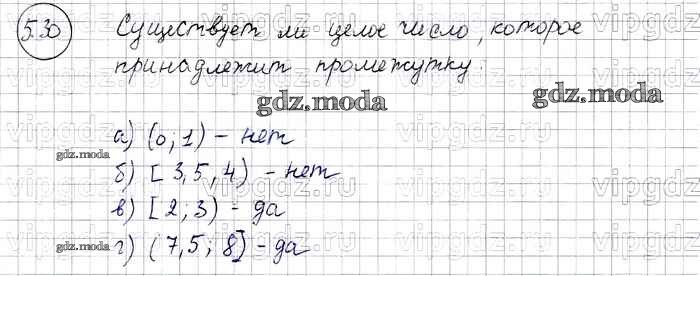 5.30 Существует ли целое число, которое
принадлежит промежутку:
gdz.moda gdz.moda
а) (0; 1) - нет
gdz.moda
б) [3,5, 4) - нет
в) [2; 3) - да
gdz.moda г) (7,5; 8] - да
vipgdz.ru